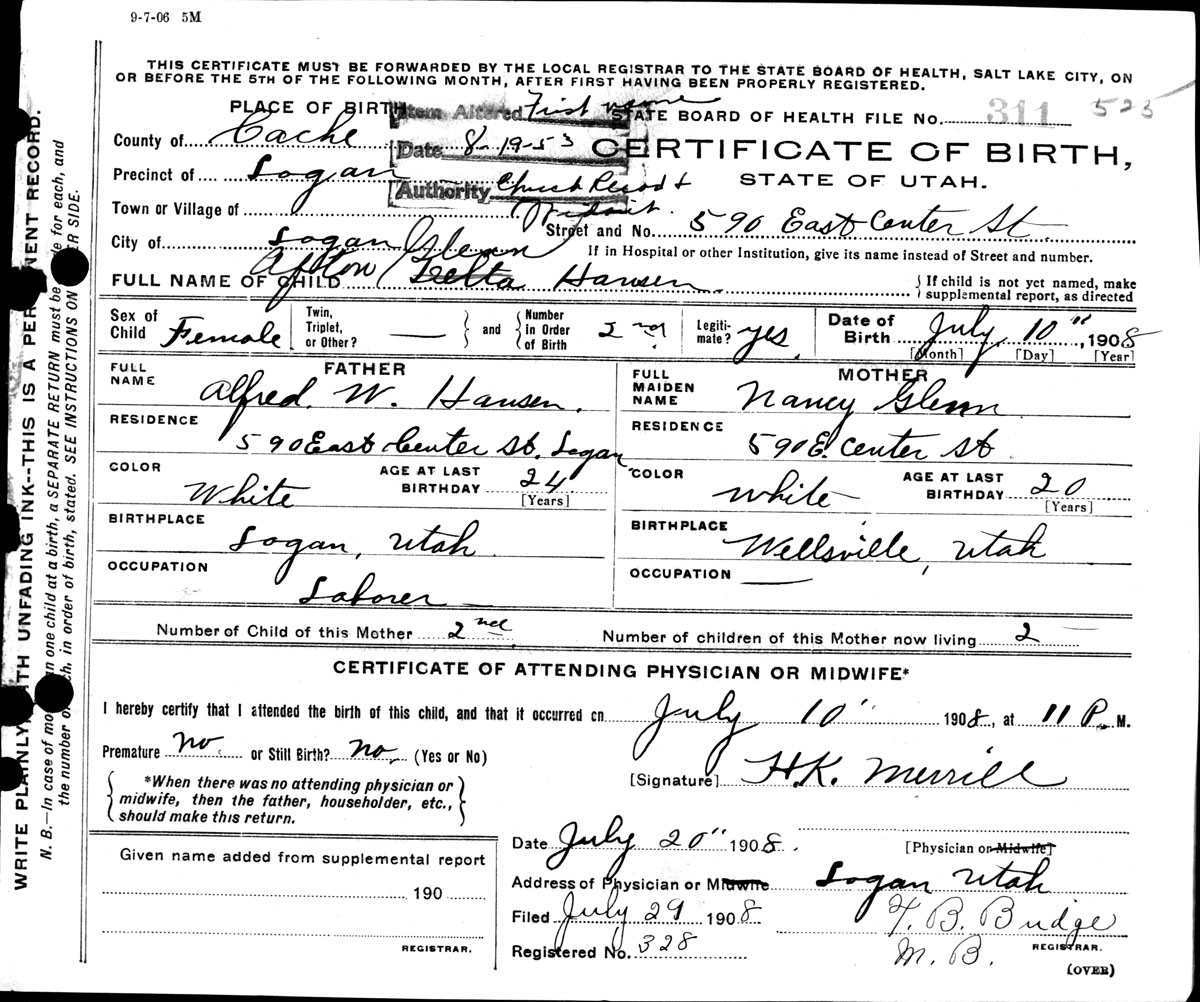 9-7-06 5M
THIS CERTIFICATE MUST BE FORWARDED BY THE LOCAL REGISTRAR TO THE STATE BOARD OF HEALTH, SALT LAKE CITY, ON
OR BEFORE THE 5TH OF THE FOLLOWING MONTH, AFTER FIRST HAVING BEEN PROPERLY REGISTERED.
PLACE OF BIRTH
Item Altered First name
STATE BOARD OF HEALTH FILE No. 311 525
County of Cache
Date 8-19-53
CERTIFICATE OF BIRTH,
Precinct of Logan
Authority Church Record &
STATE OF UTAH.
Town or Village of
Street and No. 590 East Center St.
City of Logan
If in Hospital or other Institution, give its name instead of Street and number.
Afton Glenn
FULL NAME OF CHILD Hansen
If child is not yet named, make
supplemental report, as directed
Sex of Child Female
Twin, Triplet, or Other? —
and Number in Order of Birth 2nd
Legitimate? yes
Date of Birth July 10", 1908
[Month] [Day] [Year]
FATHER
FULL NAME Alfred. W. Hansen.
RESIDENCE
590 East Center St. Logan
COLOR White
AGE AT LAST BIRTHDAY 24 [Years]
BIRTHPLACE
Logan, Utah
OCCUPATION
Laborer
MOTHER
FULL MAIDEN NAME Nancy Glenn
RESIDENCE 590 E. Center St
COLOR White
AGE AT LAST BIRTHDAY 20 [Years]
BIRTHPLACE Wellsville, Utah
OCCUPATION —
Number of Child of this Mother 2nd
Number of children of this Mother now living 2
CERTIFICATE OF ATTENDING PHYSICIAN OR MIDWIFE*
I hereby certify that I attended the birth of this child, and that it occurred on July 10" 1908, at 11 P. M.
Premature no or Still Birth? no (Yes or No)
*When there was no attending physician or
midwife, then the father, householder, etc.,
should make this return.
[Signature] H.K. Merrill
Given name added from supplemental report
190
REGISTRAR.
Date July 20" 1908.
[Physician or Midwife]
Address of Physician or Midwife Logan Utah
Filed July 29 1908
F. B. Budge
REGISTRAR.
Registered No. 328
M. B.
(OVER)
WRITE PLAINLY WITH UNFADING INK--THIS IS A PERMANENT RECORD.
N. B.—In case of more than one child at a birth, a SEPARATE RETURN must be made for each, and
the number of each, in order of birth, stated. SEE INSTRUCTIONS ON OTHER SIDE.